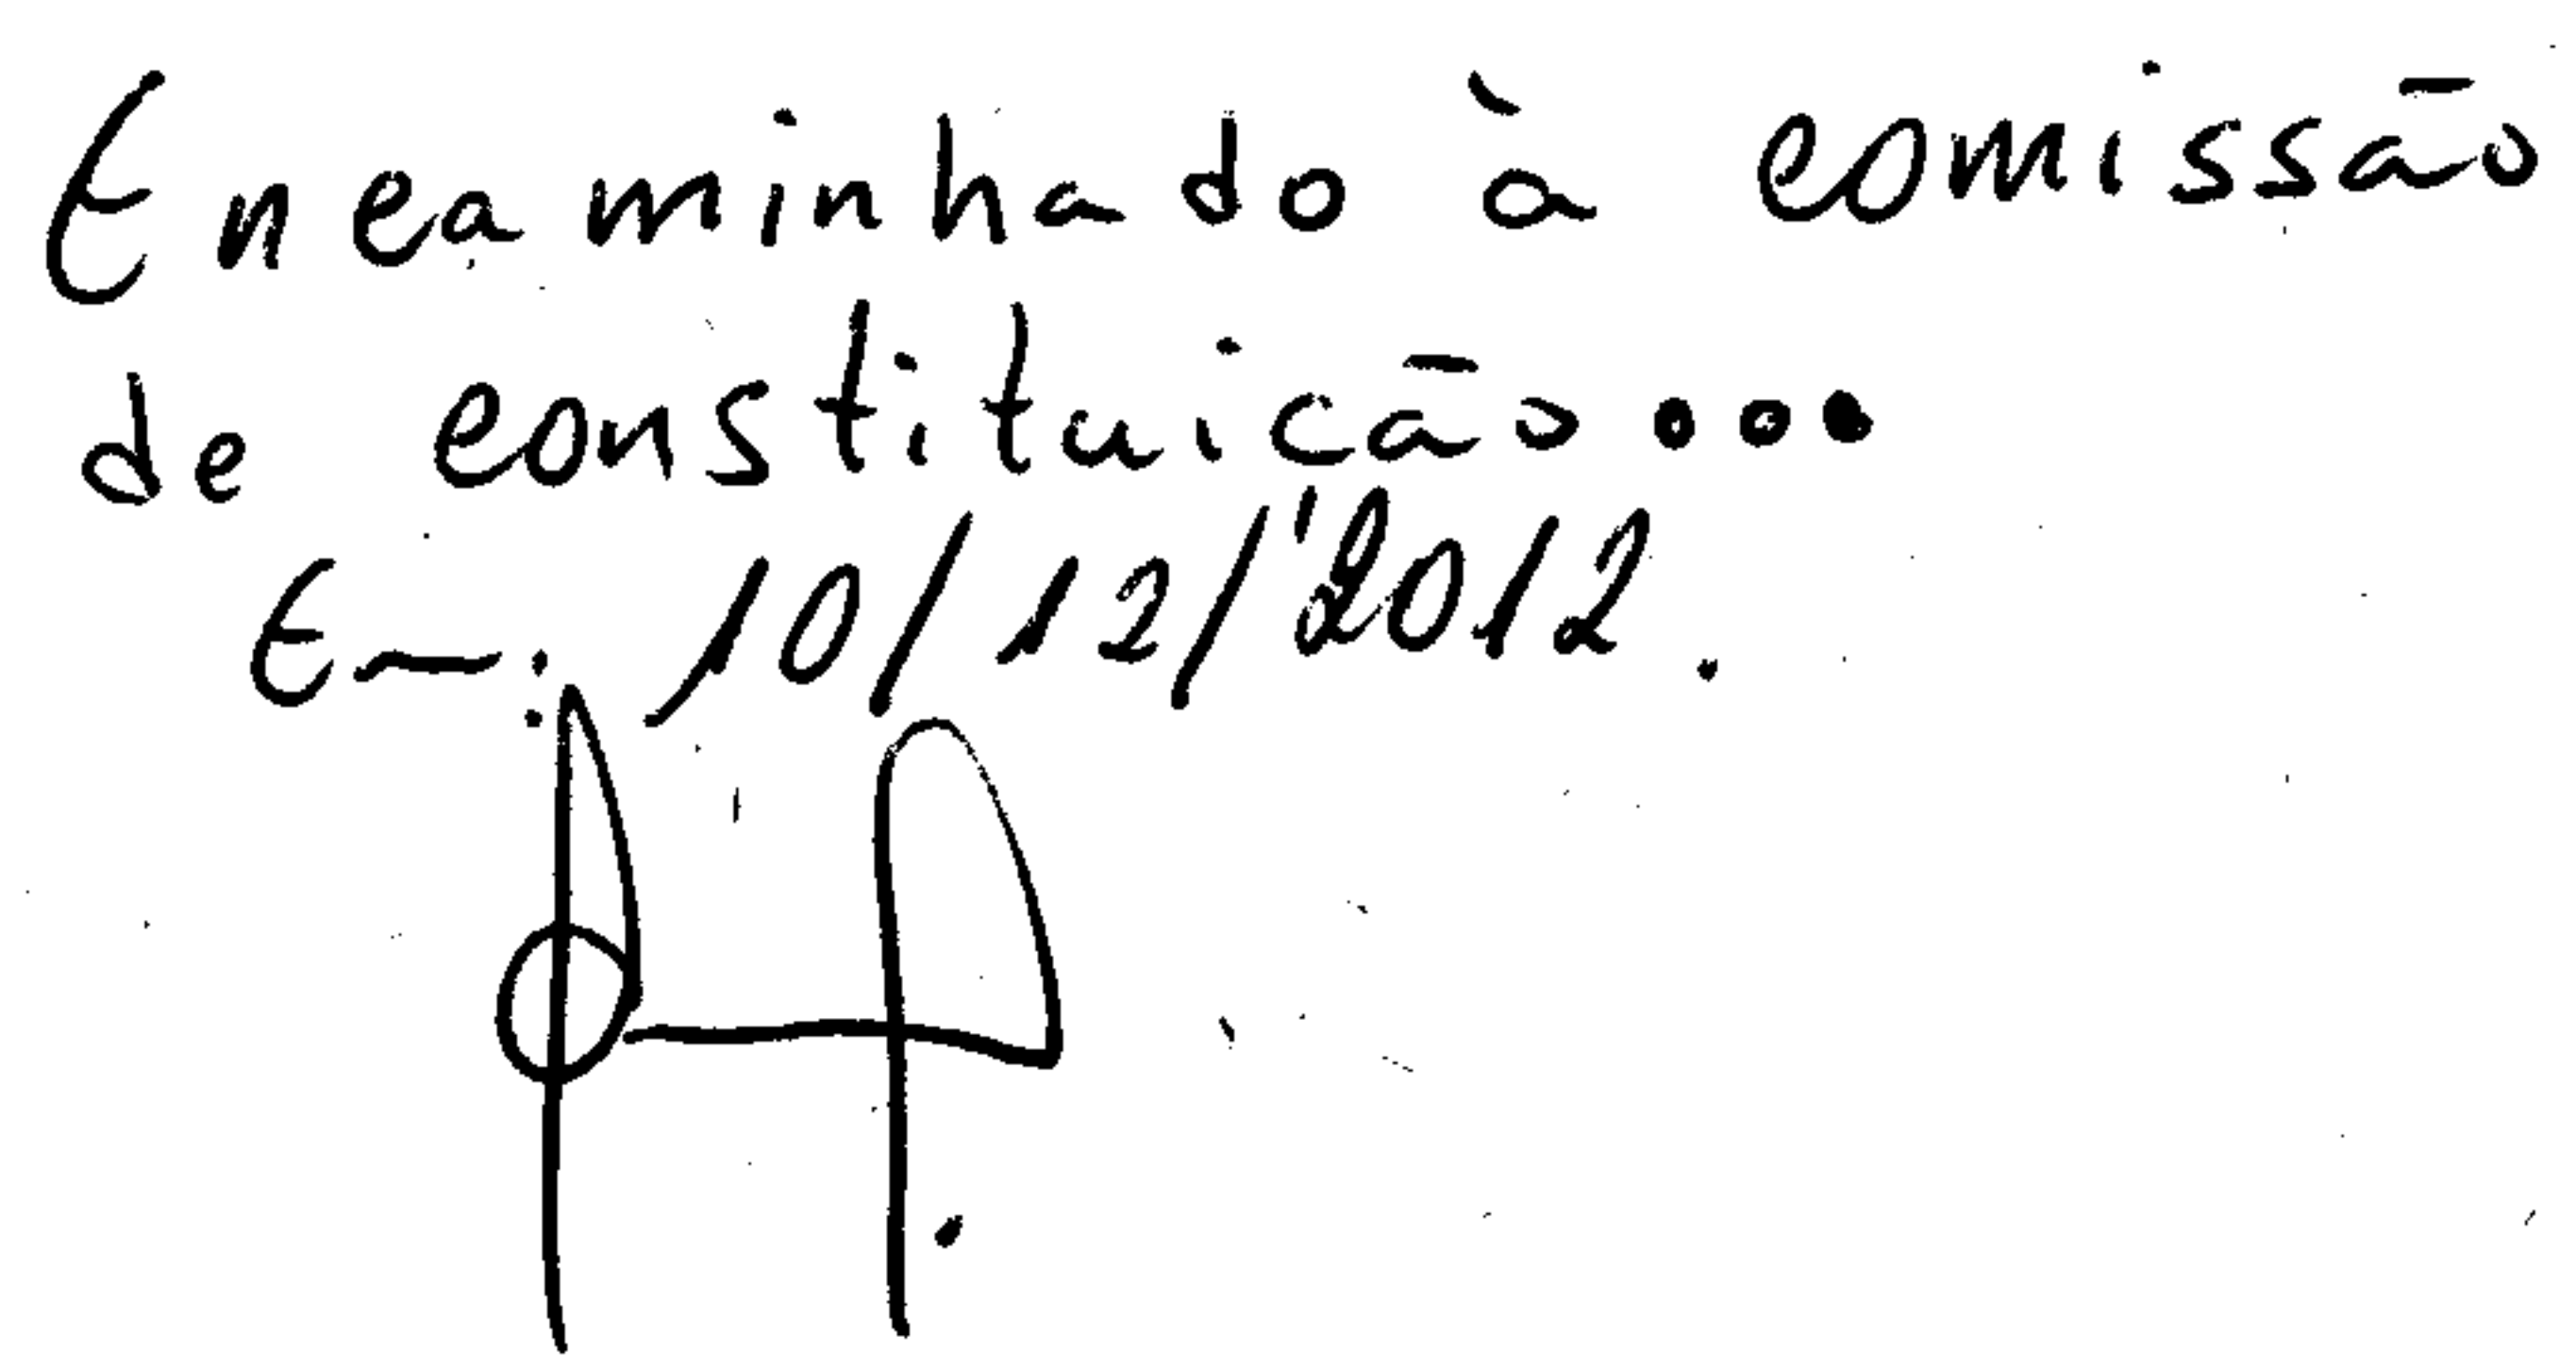 Encaminhado à comissão
de constituicão...
Em: 10/12/2012.